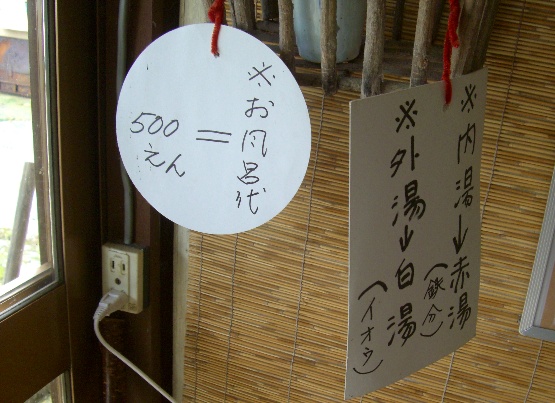 ※お風呂代
=
500
えん
※内湯→赤湯
(鉄分)
※外湯→白湯
(イオウ)